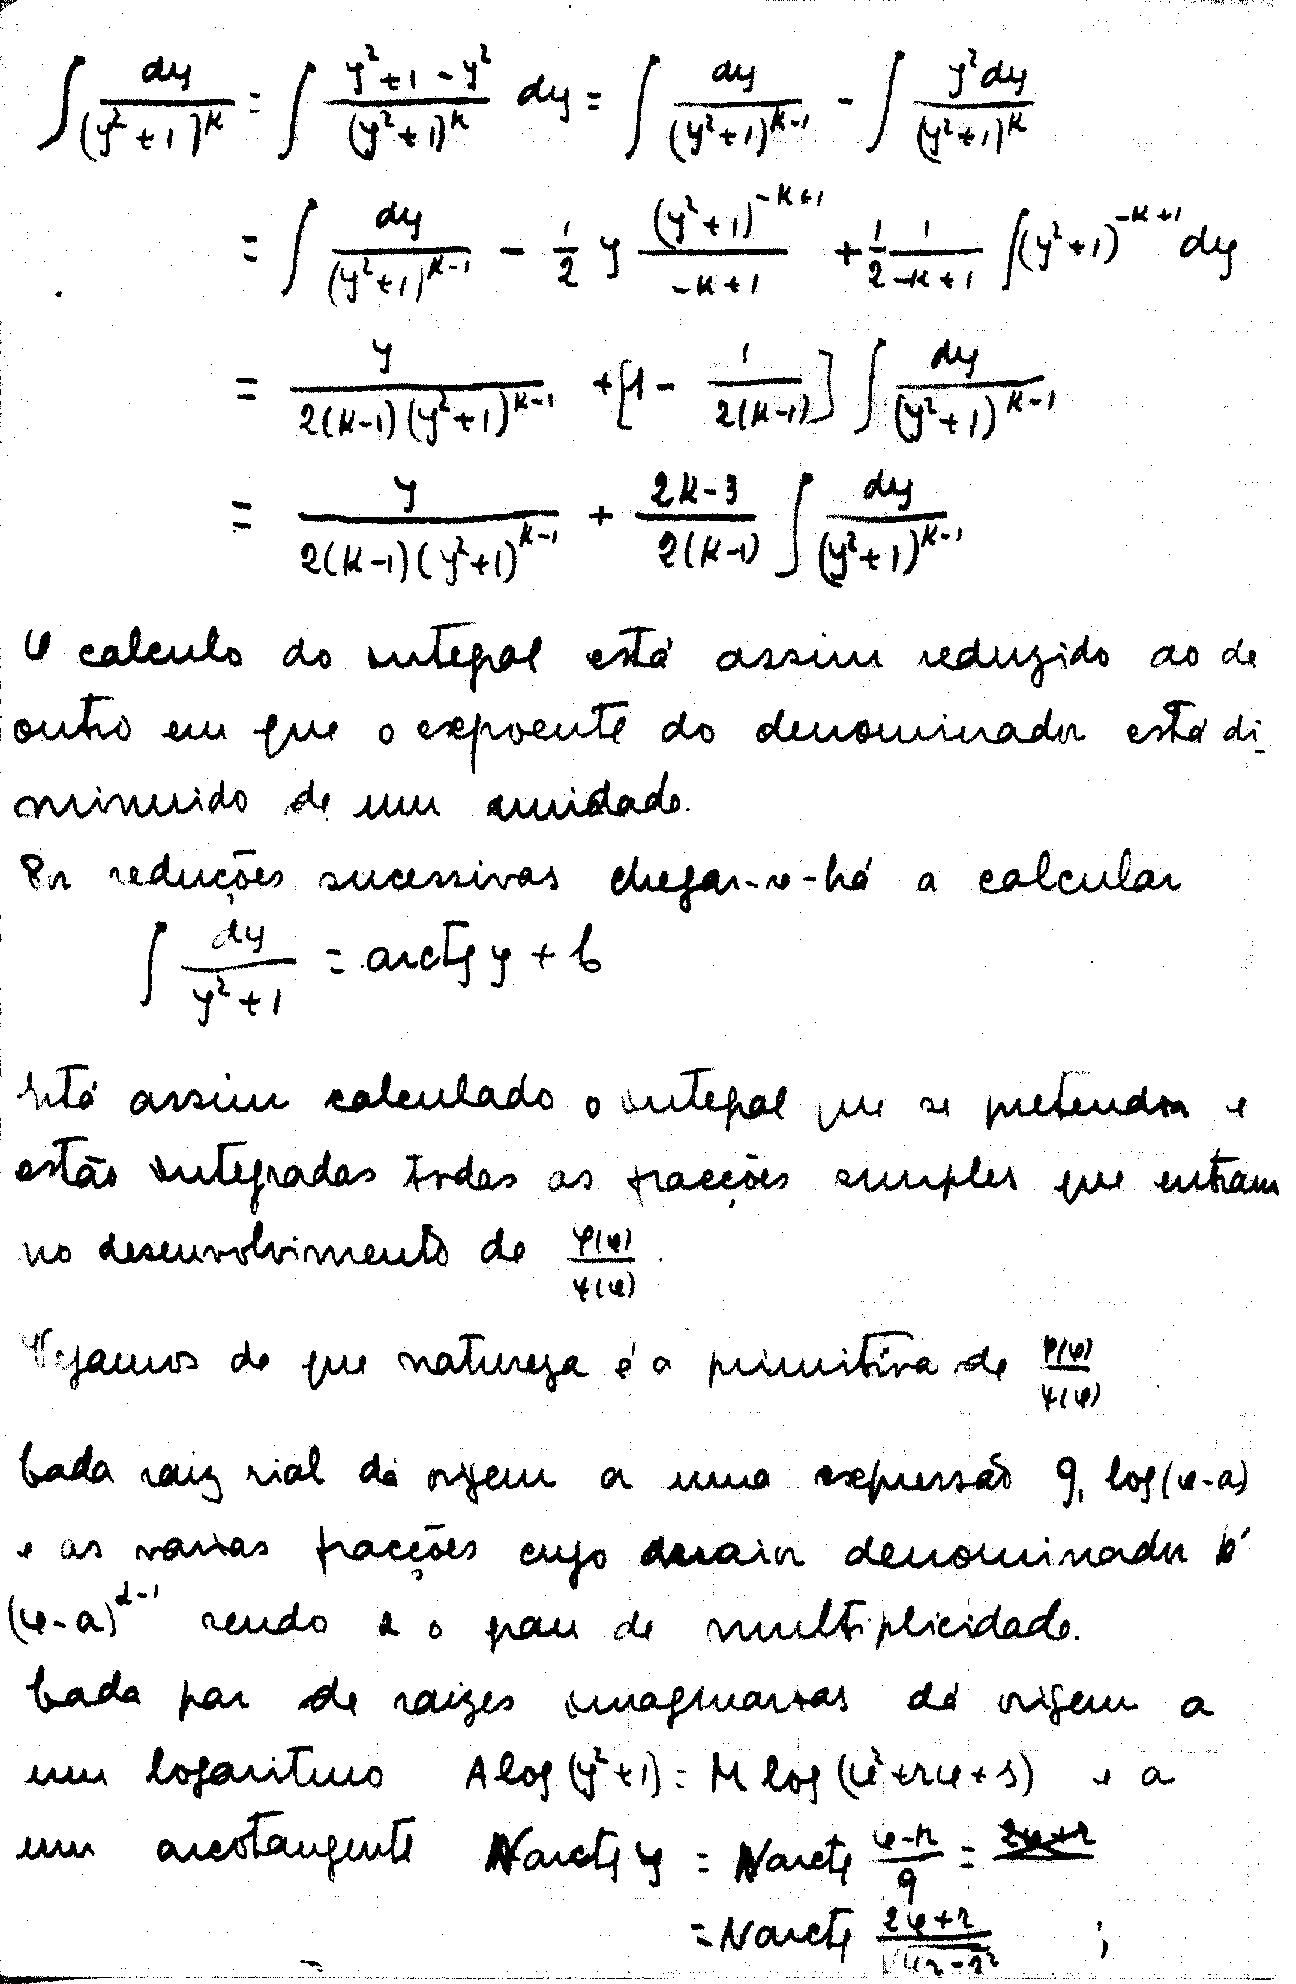 ∫ dy/(y²+1)^k = ∫ (y²+1-y²)/(y²+1)^k dy = ∫ dy/(y²+1)^{k-1} - ∫ y²dy/(y²+1)^k
= ∫ dy/(y²+1)^{k-1} - 1/2 y (y²+1)^{-k+1}/(-k+1) + 1/2 1/(-k+1) ∫(y²+1)^{-k+1} dy
= y/(2(k-1)(y²+1)^{k-1}) + [1 - 1/(2(k-1))] ∫ dy/(y²+1)^{k-1}
= y/(2(k-1)(y²+1)^{k-1}) + (2k-3)/(2(k-1)) ∫ dy/(y²+1)^{k-1}
O calculo do integral está assim reduzido ao de
outro em que o expoente do denominador está di-
minuido de uma unidade.
Por reduções sucessivas chegar-se-há a calcular
∫ dy/(y²+1) = arctg y + C
Está assim calculado o integral que se pretendia e
estão integradas todas as fracções simples que entram
no desenvolvimento de φ(x)/ψ(x).
Vejamos de que natureza é a primitiva de φ(x)/ψ(x)
Cada raiz rial dá origem a uma expressão g₁ log(x-a)
e as varias fracções cujo maior denominador é
(x-a)^{α-1} sendo α o grau de multiplicidade.
Cada par de raizes imaginarias dá origem a
um logaritmo A log(y²+1) = M log(x²+rx+s) e a
um arcotangente N arctg y = N arctg (x-p)/q =
= N arctg (2x+r)/√(4s-r²) ;